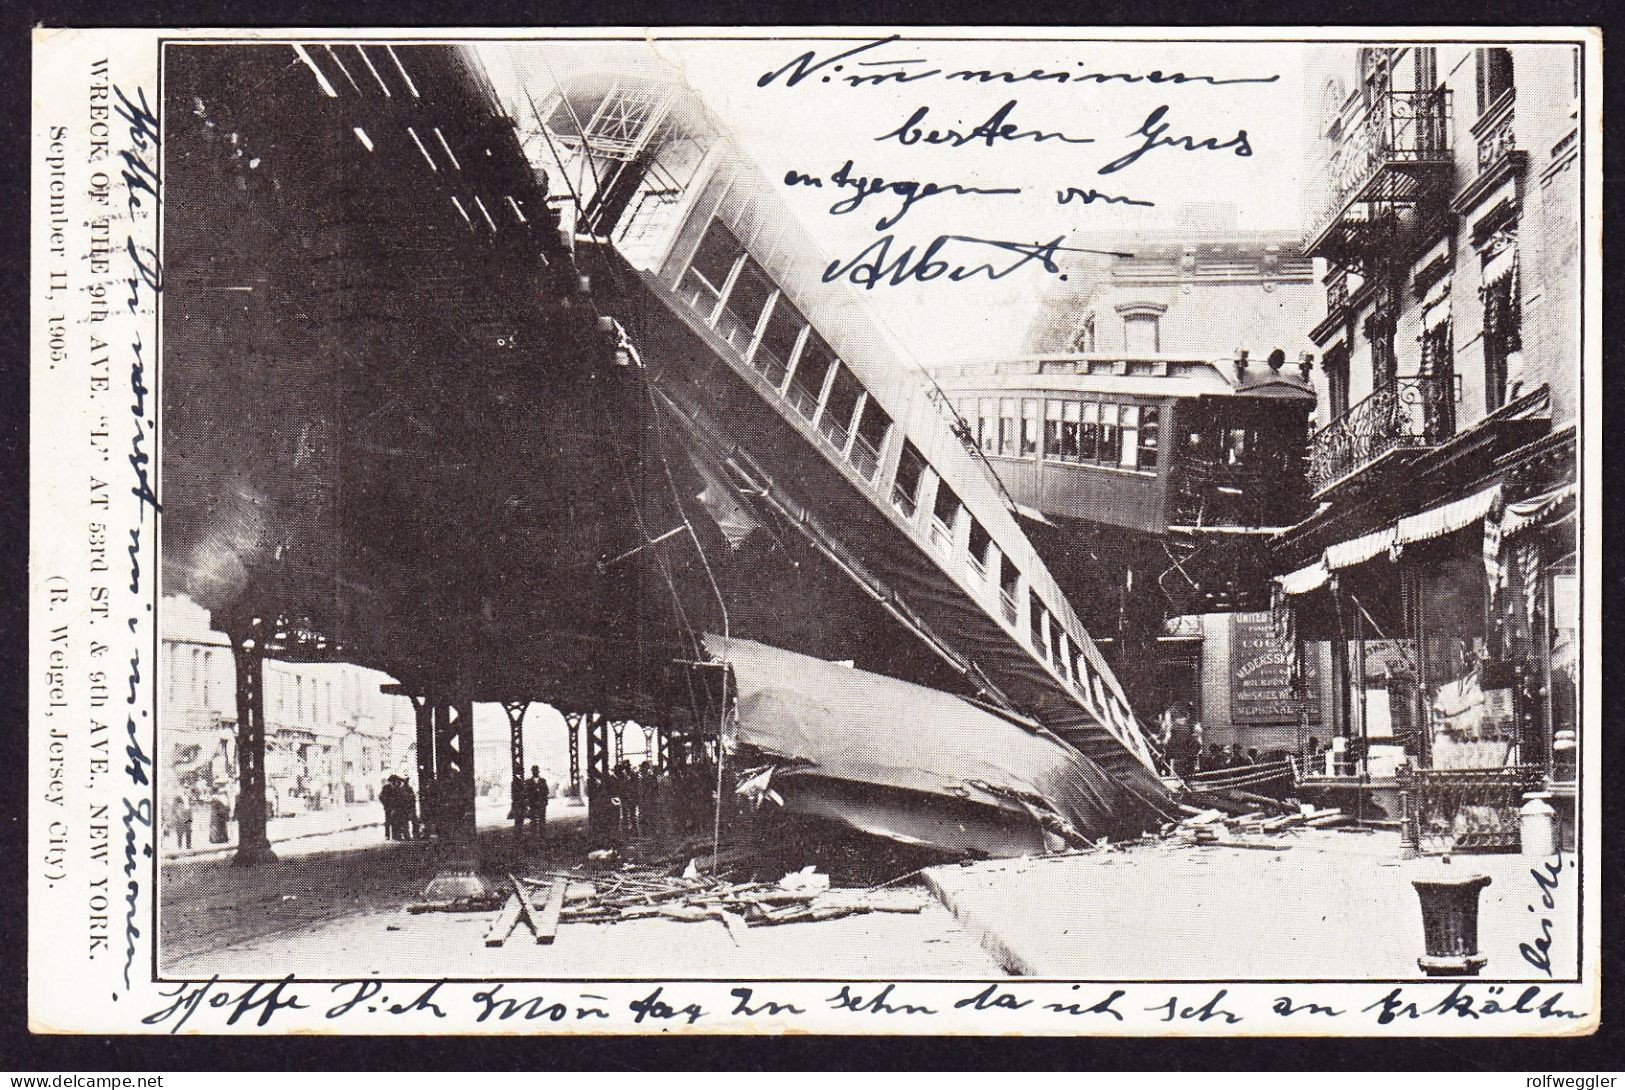 Nim̅ meinen
besten Grus
entgegen von
Albert.
WRECK OF THE 9th AVE. "L" AT 53rd ST. & 9th AVE., NEW YORK.
September 11, 1905.
(R. Weigel, Jersey City).
Hoffe Du wirst mir nicht Zürnen.
Hoffe Dich Mon̅tag Zu sehn da ich sehr an Erkältn
leide.
UNITED
rolfweggler